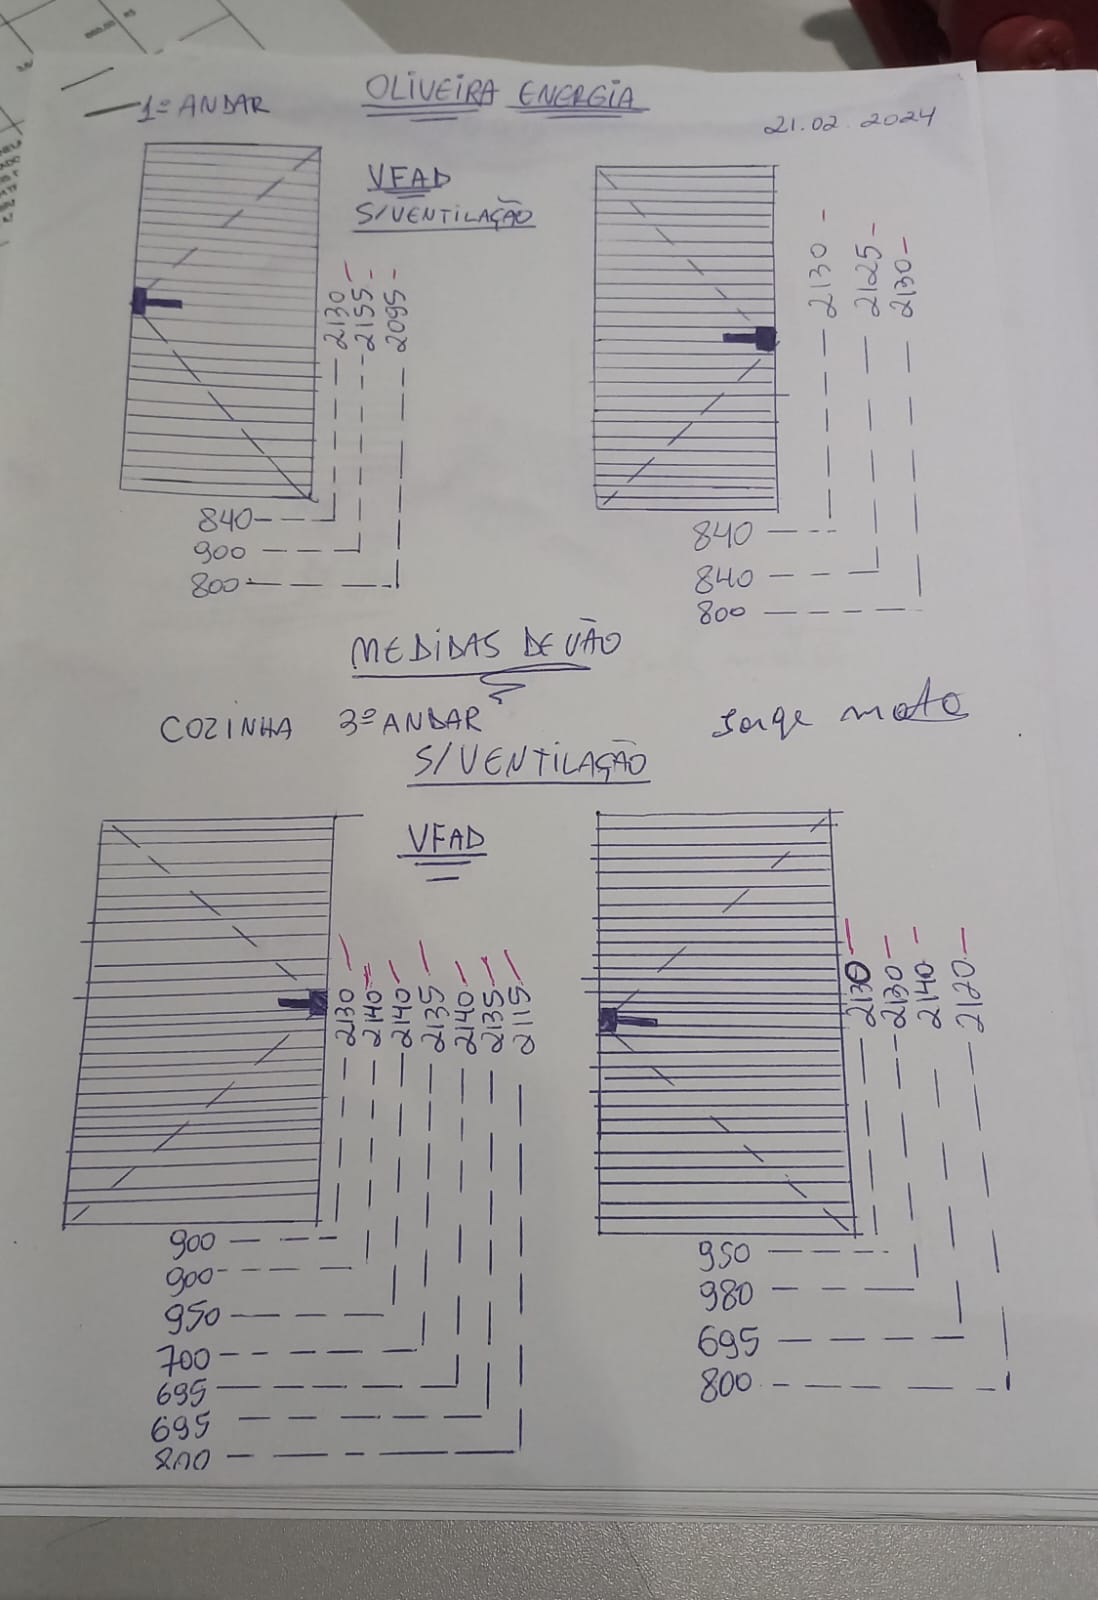 1º ANDAR
OLIVEIRA ENERGIA
21.02.2024
VFAD
S/VENTILAÇÃO
2130
2155
2095
840
900
800
2130
2125
2130
840
840
800
MEDIDAS DE VÃO
COZINHA 3º ANDAR
Jorge moto
S/VENTILAÇÃO
VFAD
2130
2140
2140
2135
2140
2135
2115
900
900
950
700
695
695
800
2130
2130
2140
2120
950
980
695
800